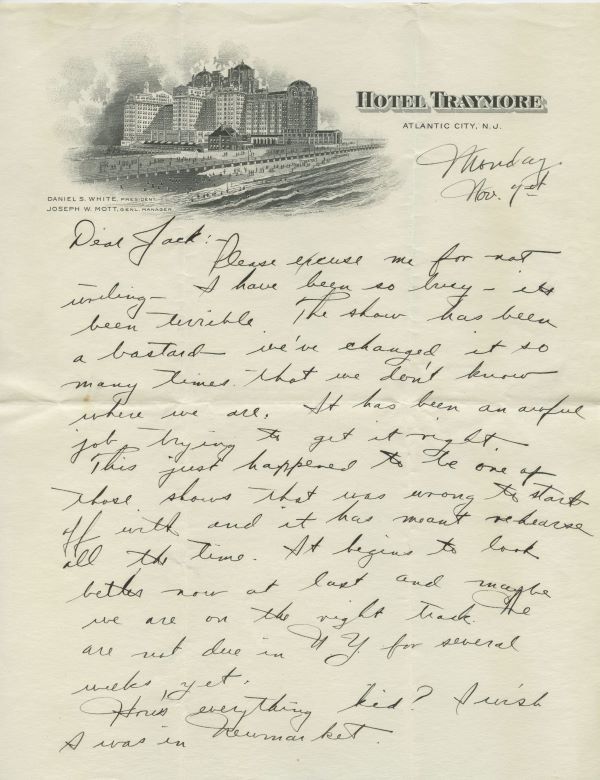 HOTEL TRAYMORE
ATLANTIC CITY, N.J.
DANIEL S. WHITE, PRESIDENT
JOSEPH W. MOTT, GENL. MANAGER
Monday
Nov.
Dear Jack:-
Please excuse me for not
writing - I have been so busy - its
been terrible. The show has been
a bastard - we've changed it so
many times that we don't know
where we are. It has been an awful
job trying to get it right.
This just happened to be one of
those shows that was wrong to start
off with and it has meant rehearse
all the time. It begins to look
better now at last and maybe
we are on the right track. We
are not due in N.Y. for several
weeks yet.
How's everything kid? I wish
I was in Newmarket.